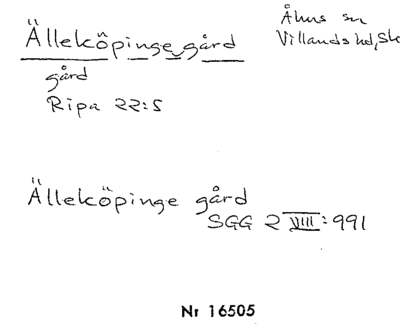 Älleköpinge gård
Åhus sn
Villands hd, Sk
gård
Ripa 22:5
Älleköpinge gård
SGG 2 VIII: 991
Nr 16505